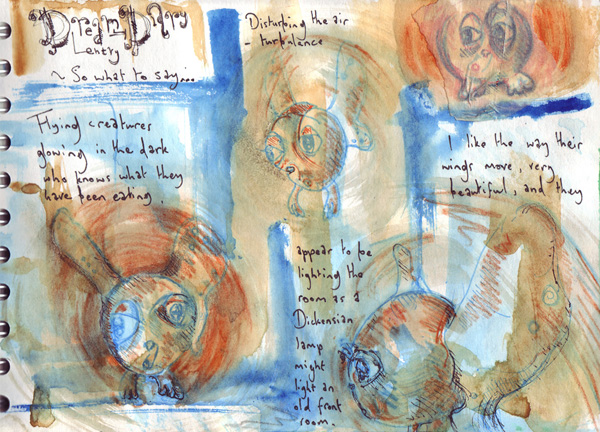 Dream Diary
entry
~ So what to say...
Flying creatures
glowing in the dark
who knows what they
have been eating.
Disturbing the air
- turbulance
I like the way their
wings move, very
beautiful, and they
appear to be
lighting the
room as a
Dickensian
lamp
might
light an
old front
room.